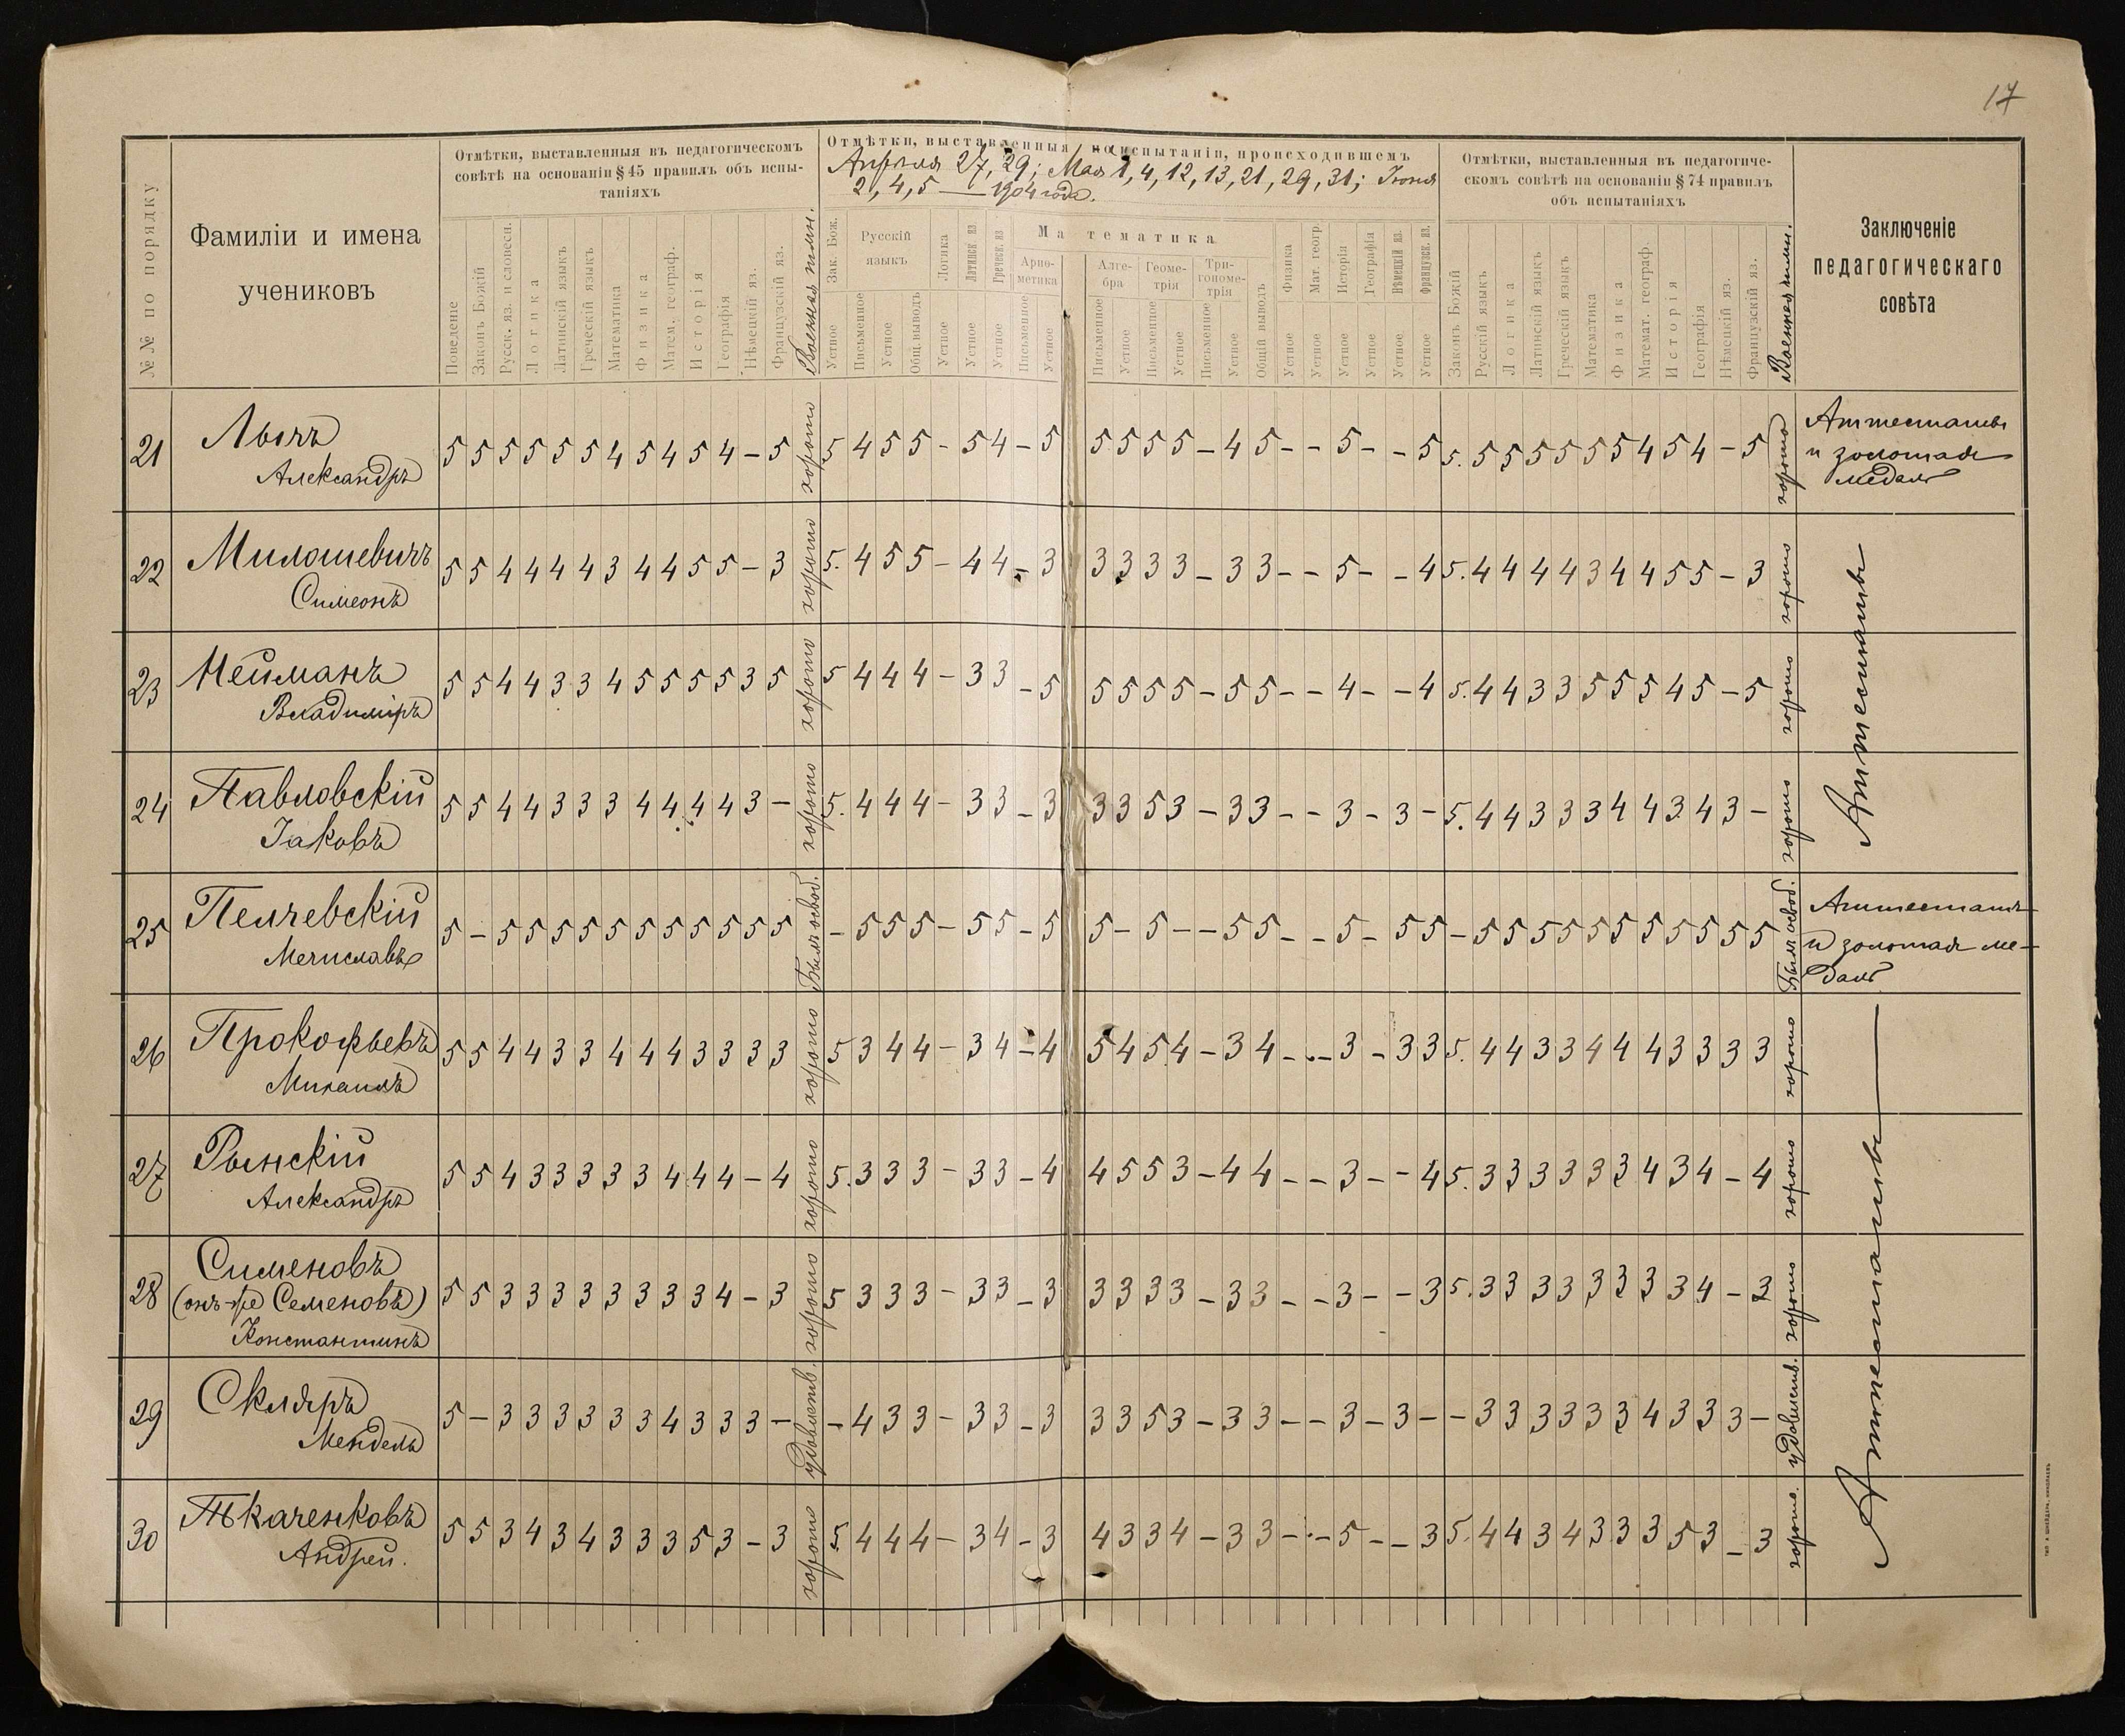 17
№№ по порядку
Фамиліи и имена
учениковъ
Отмѣтки, выставленныя въ педагогическомъ
совѣтѣ на основаніи § 45 правилъ объ испы-
таніяхъ
Поведеніе
Законъ Божій
Русск. яз. и словесн.
Логика
Латинскій языкъ
Греческій языкъ
Математика
Физика
Матем. географ.
Исторія
Географія
Нѣмецкій яз.
Французскій яз.
Военная гимн.
Отмѣтки, выставленныя на испытаніи, происходившемъ
Апрѣля 27, 29; Мая 1, 4, 12, 13, 21, 29, 31; Іюня
2, 4, 5 — 1904 года.
Зак. Бож.
Устное
Русскій
языкъ
Письменное
Устное
Общ. выводъ
Логика
Устное
Латинск. яз
Устное
Греческ. яз
Устное
Математика
Арие-
метика
Письменное
Устное
Алге-
бра
Письменное
Устное
Геоме-
трія
Письменное
Устное
Три-
гономе-
трія
Письменное
Устное
Общій выводъ
Физика
Устное
Мат. геогр.
Устное
Исторія
Устное
Географія
Устное
Нѣмецкій яз.
Устное
Французск. яз.
Устное
Отмѣтки, выставленныя въ педагогиче-
скомъ совѣтѣ на основаніи § 74 правилъ
объ испытаніяхъ
Законъ Божій
Русскій языкъ
Логика
Латинскій языкъ
Греческій языкъ
Математика
Физика
Математ. географ.
Исторія
Географія
Нѣмецкій яз.
Французскій яз.
Военная гимн.
Заключеніе
педагогическаго
совѣта
21 Александръ 5 5 5 5 5 5 4 5 4 5 4 – 5 хорошо 5 4 5 5 – 5 4 – 5 5 5 5 5 – 4 5 – – 5 – – 5 5. 5 5 5 5 5 5 4 5 4 – 5 хорошо Аттестатъ и золотая медаль
22 Милошевичъ Симеонъ 5 5 4 4 4 4 3 4 4 5 5 – 3 хорошо 5. 4 5 5 – 4 4 – 3 3 3 3 3 – 3 3 – – 5 – – 4 5. 4 4 4 4 3 4 4 5 5 – 3 хорошо
23 Нейманъ Владиміръ 5 5 4 4 3 3 4 5 5 5 5 3 5 хорошо 5 4 4 4 – 3 3 – 5 5 5 5 5 – 5 5 – – 4 – – 4 5. 4 4 3 3 5 5 5 4 5 – 5 хорошо
Аттестаты
24 Павловскій Іаковъ 5 5 4 4 3 3 3 4 4 4 4 3 – хорошо 5. 4 4 4 – 3 3 – 3 3 3 5 3 – 3 3 – – 3 – 3 – 5. 4 4 3 3 3 4 4 3 4 3 – хорошо
25 Пелчевскій Мечиславъ 5 – 5 5 5 5 5 5 5 5 5 5 5 Былъ освоб. – 5 5 5 – 5 5 – 5 5 – 5 – – 5 5 – – 5 – 5 5 – 5 5 5 5 5 5 5 5 5 5 5 Былъ освоб. Аттестатъ и золотая ме- даль
26 Прокофьевъ Михаилъ 5 5 4 4 3 3 4 4 4 3 3 3 3 хорошо 5 3 4 4 – 3 4 – 4 5 4 5 4 – 3 4 – – 3 – 3 3 5. 4 4 3 3 4 4 4 3 3 3 3 хорошо
27 Рынскій Александръ 5 5 4 3 3 3 3 3 4 4 4 – 4 хорошо 5. 3 3 3 – 3 3 – 4 4 5 5 3 – 4 4 – – 3 – – 4 5. 3 3 3 3 3 3 4 3 4 – 4 хорошо
Аттестаты
28 Сименовъ (онъ-же Семеновъ) Константинъ 5 5 3 3 3 3 3 3 3 3 4 – 3 хорошо 5 3 3 3 – 3 3 – 3 3 3 3 3 – 3 3 – – 3 – – 3 5. 3 3 3 3 3 3 3 3 4 – 3 хорошо
29 Скляръ Мендель 5 – 3 3 3 3 3 3 4 3 3 3 – удовлетв. – 4 3 3 – 3 3 – 3 3 3 5 3 – 3 3 – – 3 – 3 – – 3 3 3 3 3 3 4 3 3 3 – удовлетв.
30 Ткаченковъ Андрей. 5 5 3 4 3 4 3 3 3 5 3 – 3 хорошо 5 4 4 4 – 3 4 – 3 4 3 3 4 – 3 3 – – 5 – – 3 5. 4 4 3 4 3 3 3 5 3 – 3 хорошо.